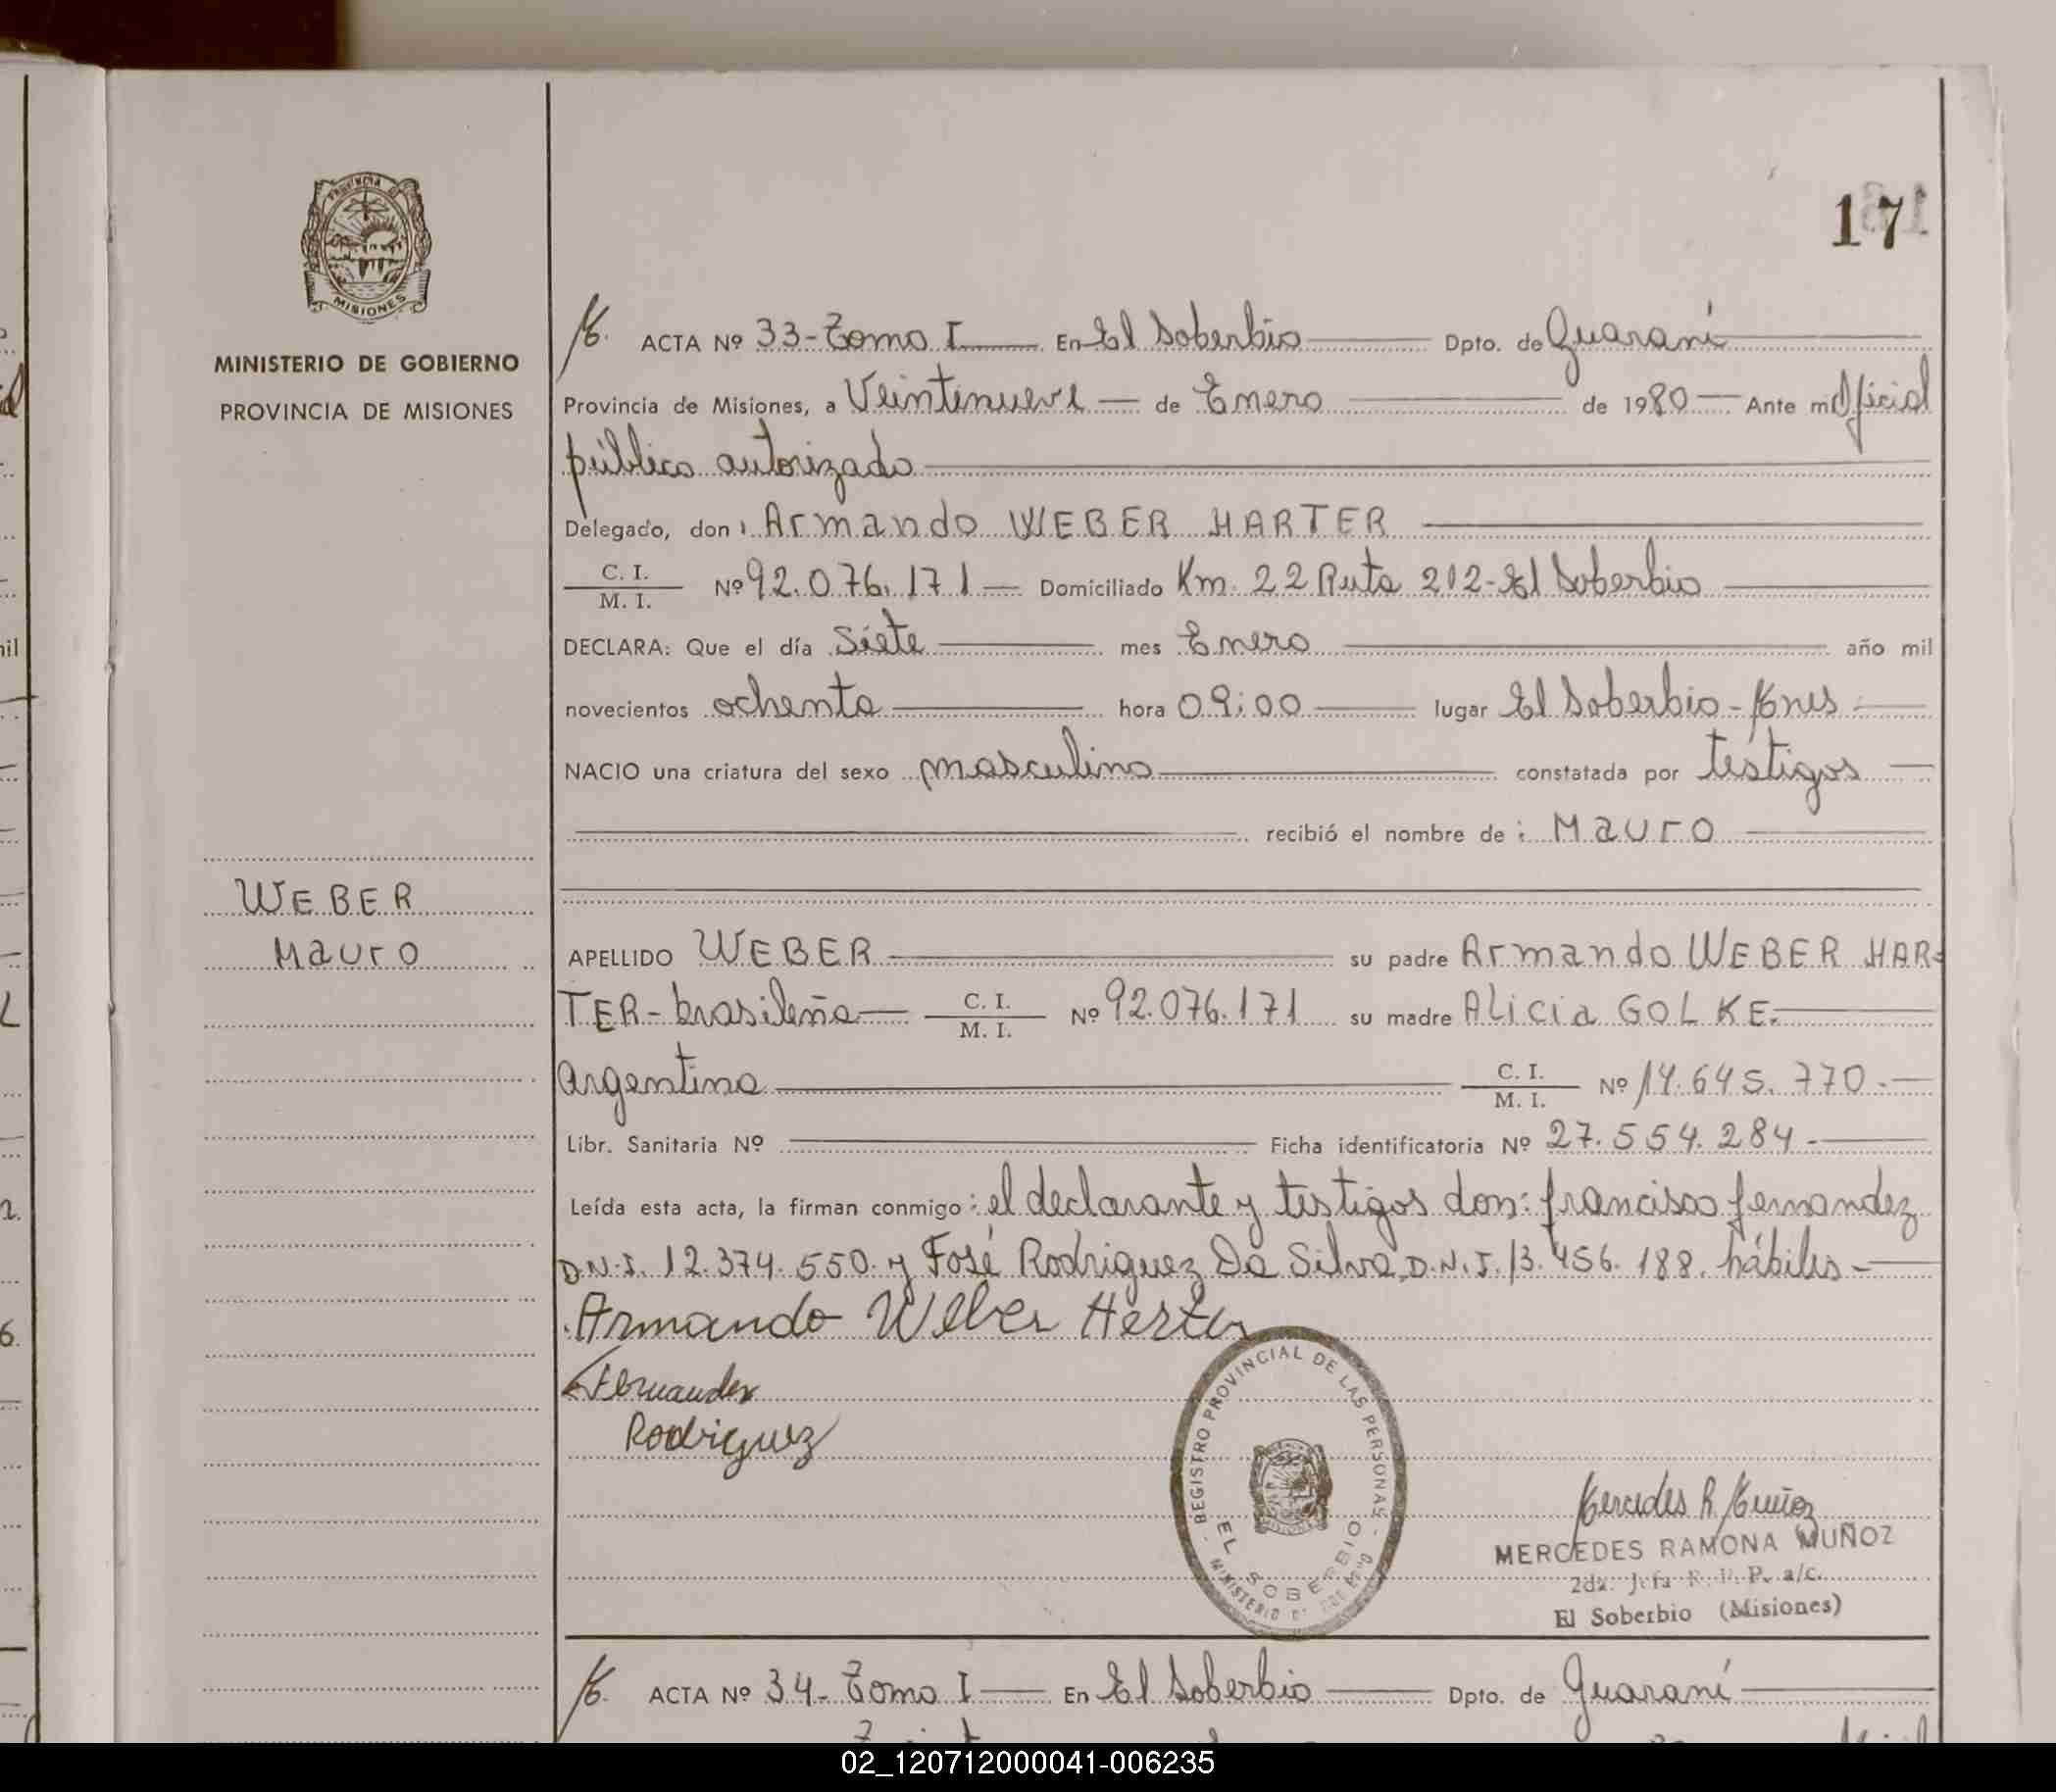 PROVINCIA DE
MISIONES
MINISTERIO DE GOBIERNO
PROVINCIA DE MISIONES
WEBER
Mauro
17
ACTA Nº 33-Tomo I En El Soberbio Dpto. de Guaraní
Provincia de Misiones, a Veintinueve de Enero de 1980 Ante mí Oficial
público autorizado
Delegado, don: Armando WEBER HARTER
C. I.
M. I. Nº 92.076.171 Domiciliado Km. 22 Ruta 212-El Soberbio
DECLARA: Que el día Siete mes Enero año mil
novecientos ochenta hora 09:00 lugar El Soberbio-Mnes
NACIO una criatura del sexo masculino constatada por testigos
recibió el nombre de: Mauro
APELLIDO WEBER su padre Armando WEBER HAR-
TER-brasileña C. I. M. I. Nº 92.076.171 su madre Alicia GOLKE.
argentina C. I. M. I. Nº 14.645.770.
Libr. Sanitaria Nº Ficha identificatoria Nº 27.554.284.
Leída esta acta, la firman conmigo: el declarante y testigos don: francisco fernandez
D.N.I. 12.374.550. y José Rodriguez Da Silva, D.N.I. 13.456.188. hábiles
Armando Weber Herter
Fernandez
Rodriguez
REGISTRO PROVINCIAL DE LAS PERSONAS
EL SOBERBIO
Mercedes R. Muñoz
MERCEDES RAMONA MUÑOZ
2da. Jefa R. P. P. a/c.
El Soberbio (Misiones)
ACTA Nº 34-Tomo I En El Soberbio Dpto. de Guaraní
02_120712000041-006235